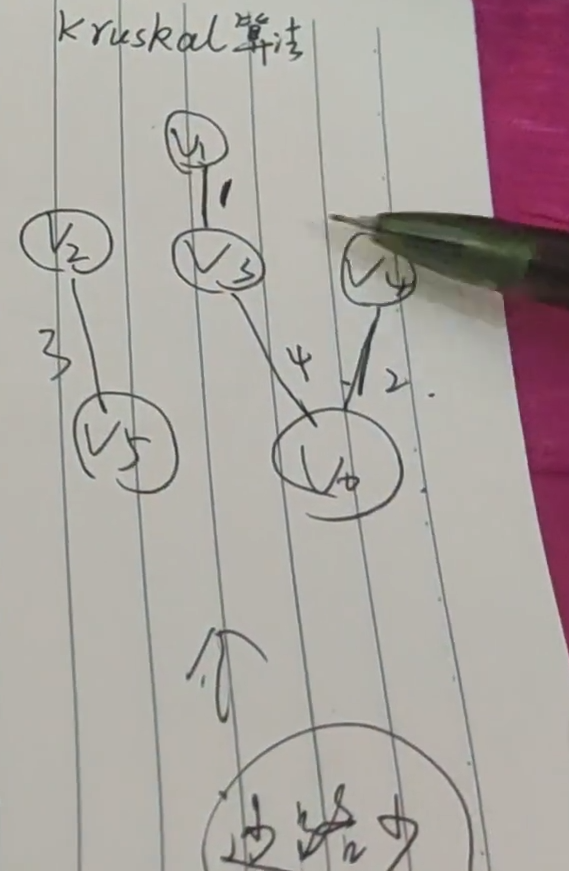 Kruskal算法
V1
1
V2
V3
V4
3
4
2.
V5
V6